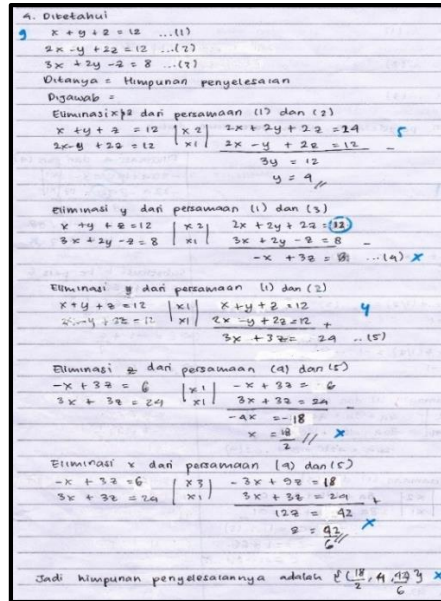 4. Diketahui
9 x + y + z = 12 ...(1)
2x - y + 2z = 12 ...(2)
3x + 2y - z = 8 ...(3)
Ditanya = Himpunan penyelesaian
Dijawab =
Eliminasi x,z dari persamaan (1) dan (2)
x + y + z = 12 | x2 | 2x + 2y + 2z = 24 5
2x - y + 2z = 12 | x1 | 2x - y + 2z = 12 -
3y = 12
y = 4 //
Eliminasi y dari persamaan (1) dan (3)
x + y + z = 12 | x2 | 2x + 2y + 2z = 12
3x + 2y - z = 8 | x1 | 3x + 2y - z = 8 -
-x + 3z = ...(4) x
Eliminasi y dari persamaan (1) dan (2)
x + y + z = 12 | x1 | x + y + z = 12 4
2x - y + 2z = 12 | x1 | 2x - y + 2z = 12 +
3x + 3z = 24 ...(5)
Eliminasi z dari persamaan (4) dan (5)
-x + 3z = 6 | x1 | -x + 3z = 6
3x + 3z = 24 | x1 | 3x + 3z = 24 -
-4x = -18
x = 18/2 // x
Eliminasi x dari persamaan (4) dan (5)
-x + 3z = 6 | x3 | -3x + 9z = 18
3x + 3z = 24 | x1 | 3x + 3z = 24 +
12z = 42
z = 42/6 // x
Jadi himpunan penyelesaiannya adalah {(18/2, 4, 42/6)} x